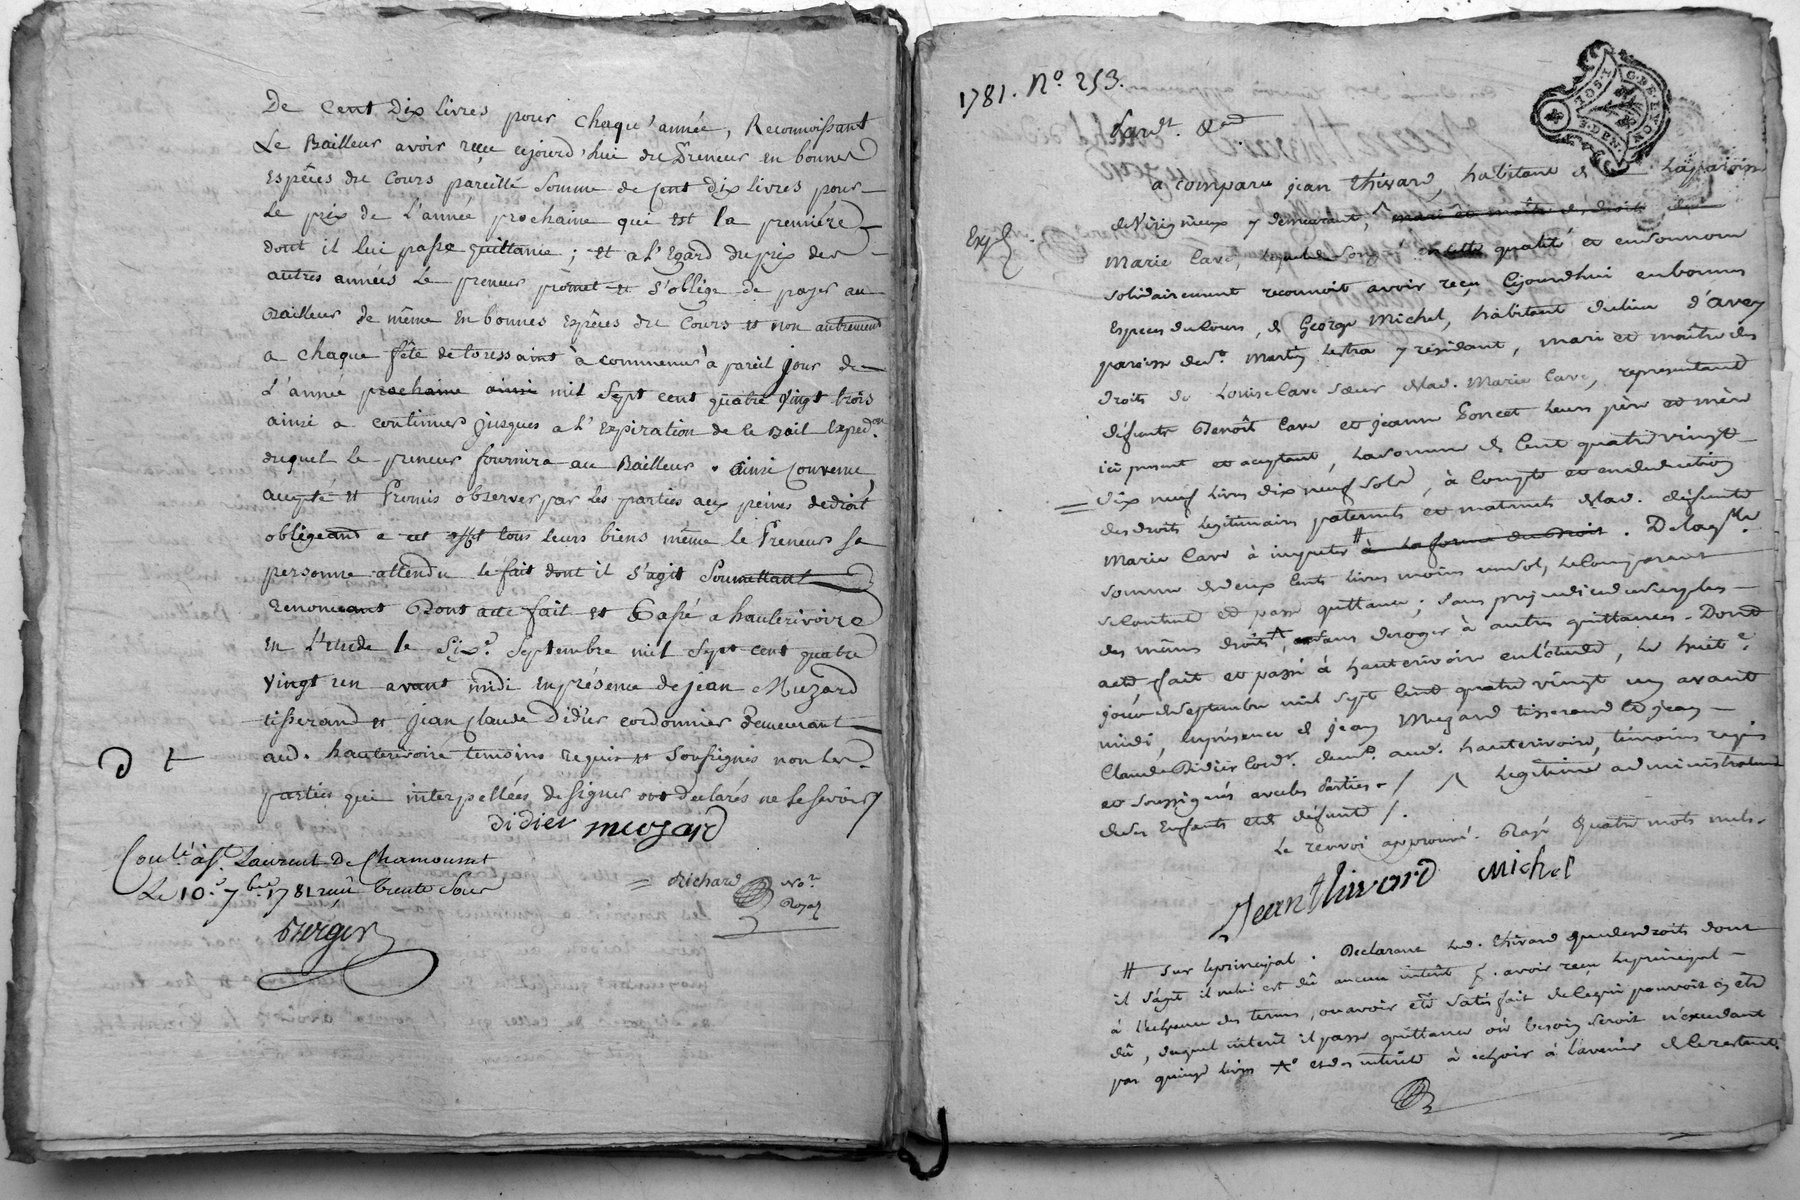 De Cent Dix livres pour chaqu'année, Reconnoissant
Le Bailleur avoir reçu cejourd'hui du Preneur en bonnes
espêces du Cours pareille Somme de Cent Dix livres pour
Le prix de L'année prochaine qui est la premiére
dont il lui passe quittance ; et a L'Egard du prix des
autres années Le preneur promet et s'oblige de payer au
Bailleur de même En bonnes Espêces du Cours et non autrement
a chaque fête de toressaints à commencer à pareil jour de
L'année prochaine ainsi mil Sept cent quatre Vingt trois
ainsi a continuer jusques a L'Expiration de Ce Bail Exped.on
duquel Le preneur fournira au Bailleur . ainsi Convenu
accepté et Promis observer par Les parties aux peines de droit
obligeand a cet effet tous Leurs biens même Le Preneur Sa
personne attendu Le fait dont il s'agit Soumettant
Renonceant Dont acte fait et Passé a hauterivoire
en L'etude le Six.e Septembre mil Sept cent quatre
Vingt un avant midi en présence de jean Muzard
tisserand et jean Claude Didier cordonnier demeurant
aud. hauterivoire temoins requis et Soussignés non Les
parties qui interpellées de signer ont declarés ne le Savoir
didier muzard
Con.lé à St Laurent De Chamousset
Le 10.e 7.bre 1781 reçu trente Sous
Richard No.re Royal
1781. No 253.
a comparu jean thivard, habitant de La paroisse
de Virigneux y demeurant, mari et maître des droits de
Marie Cave, qualité et en son nom
solidairement reconnoit avoir reçu Cejourdhui en bonnes
Especes du Cours, de George Michel, habitant du lieu d'avey
paroisse de St. Martin Lestra y résidant, mari et maître des
droits de Louise Cave sœur de lad. Marie Cave, représentant
défunts Benoît Cave et jeanne Poncet Leurs père et mère
ici présent et acceptant, La somme de Cent quatre vingt
dix neuf Livres dix neuf sols, à Compte et en déduction
des droits Légitimaires paternels et maternels de lad. défunte
Marie Cave à imputer # à La forme du Droit . De laq.lle
somme de deux Cents Livres moins un sol, Le Comparant
se Contente et passe quittance ; sans préjudice du surplus
des mêmes droits, sans déroger à autres quittances . Dont
acte fait et passé à hauterivoire en l'étude, Le huit.e
jour de Septembre mil sept Cent quatre vingt un avant
midi, en présence de jean Muzard tisserand et jean
Claude Didier Cord.r demt. aud. hauterivoire, témoins requis
et soussignés avec les Parties . / Λ Légitime administrateur
de ses Enfants et de défunte /.
Le renvoi approuvé. Rayé quatre mots nuls.
Jean thivard Michel
# sur le principal . Déclarant Led. thivard que des droits dont
il s'agit il ne lui est dû aucun intérêt p.r avoir reçu Le principal
à L'échéance des termes, ou avoir été satisfait de ce qui pouvoit en être
dû, duquel intérêt il passe quittance où besoin seroit n'excédant
pas quinze Livres et des intérêts à échoir à L'avenir de Ce restant.